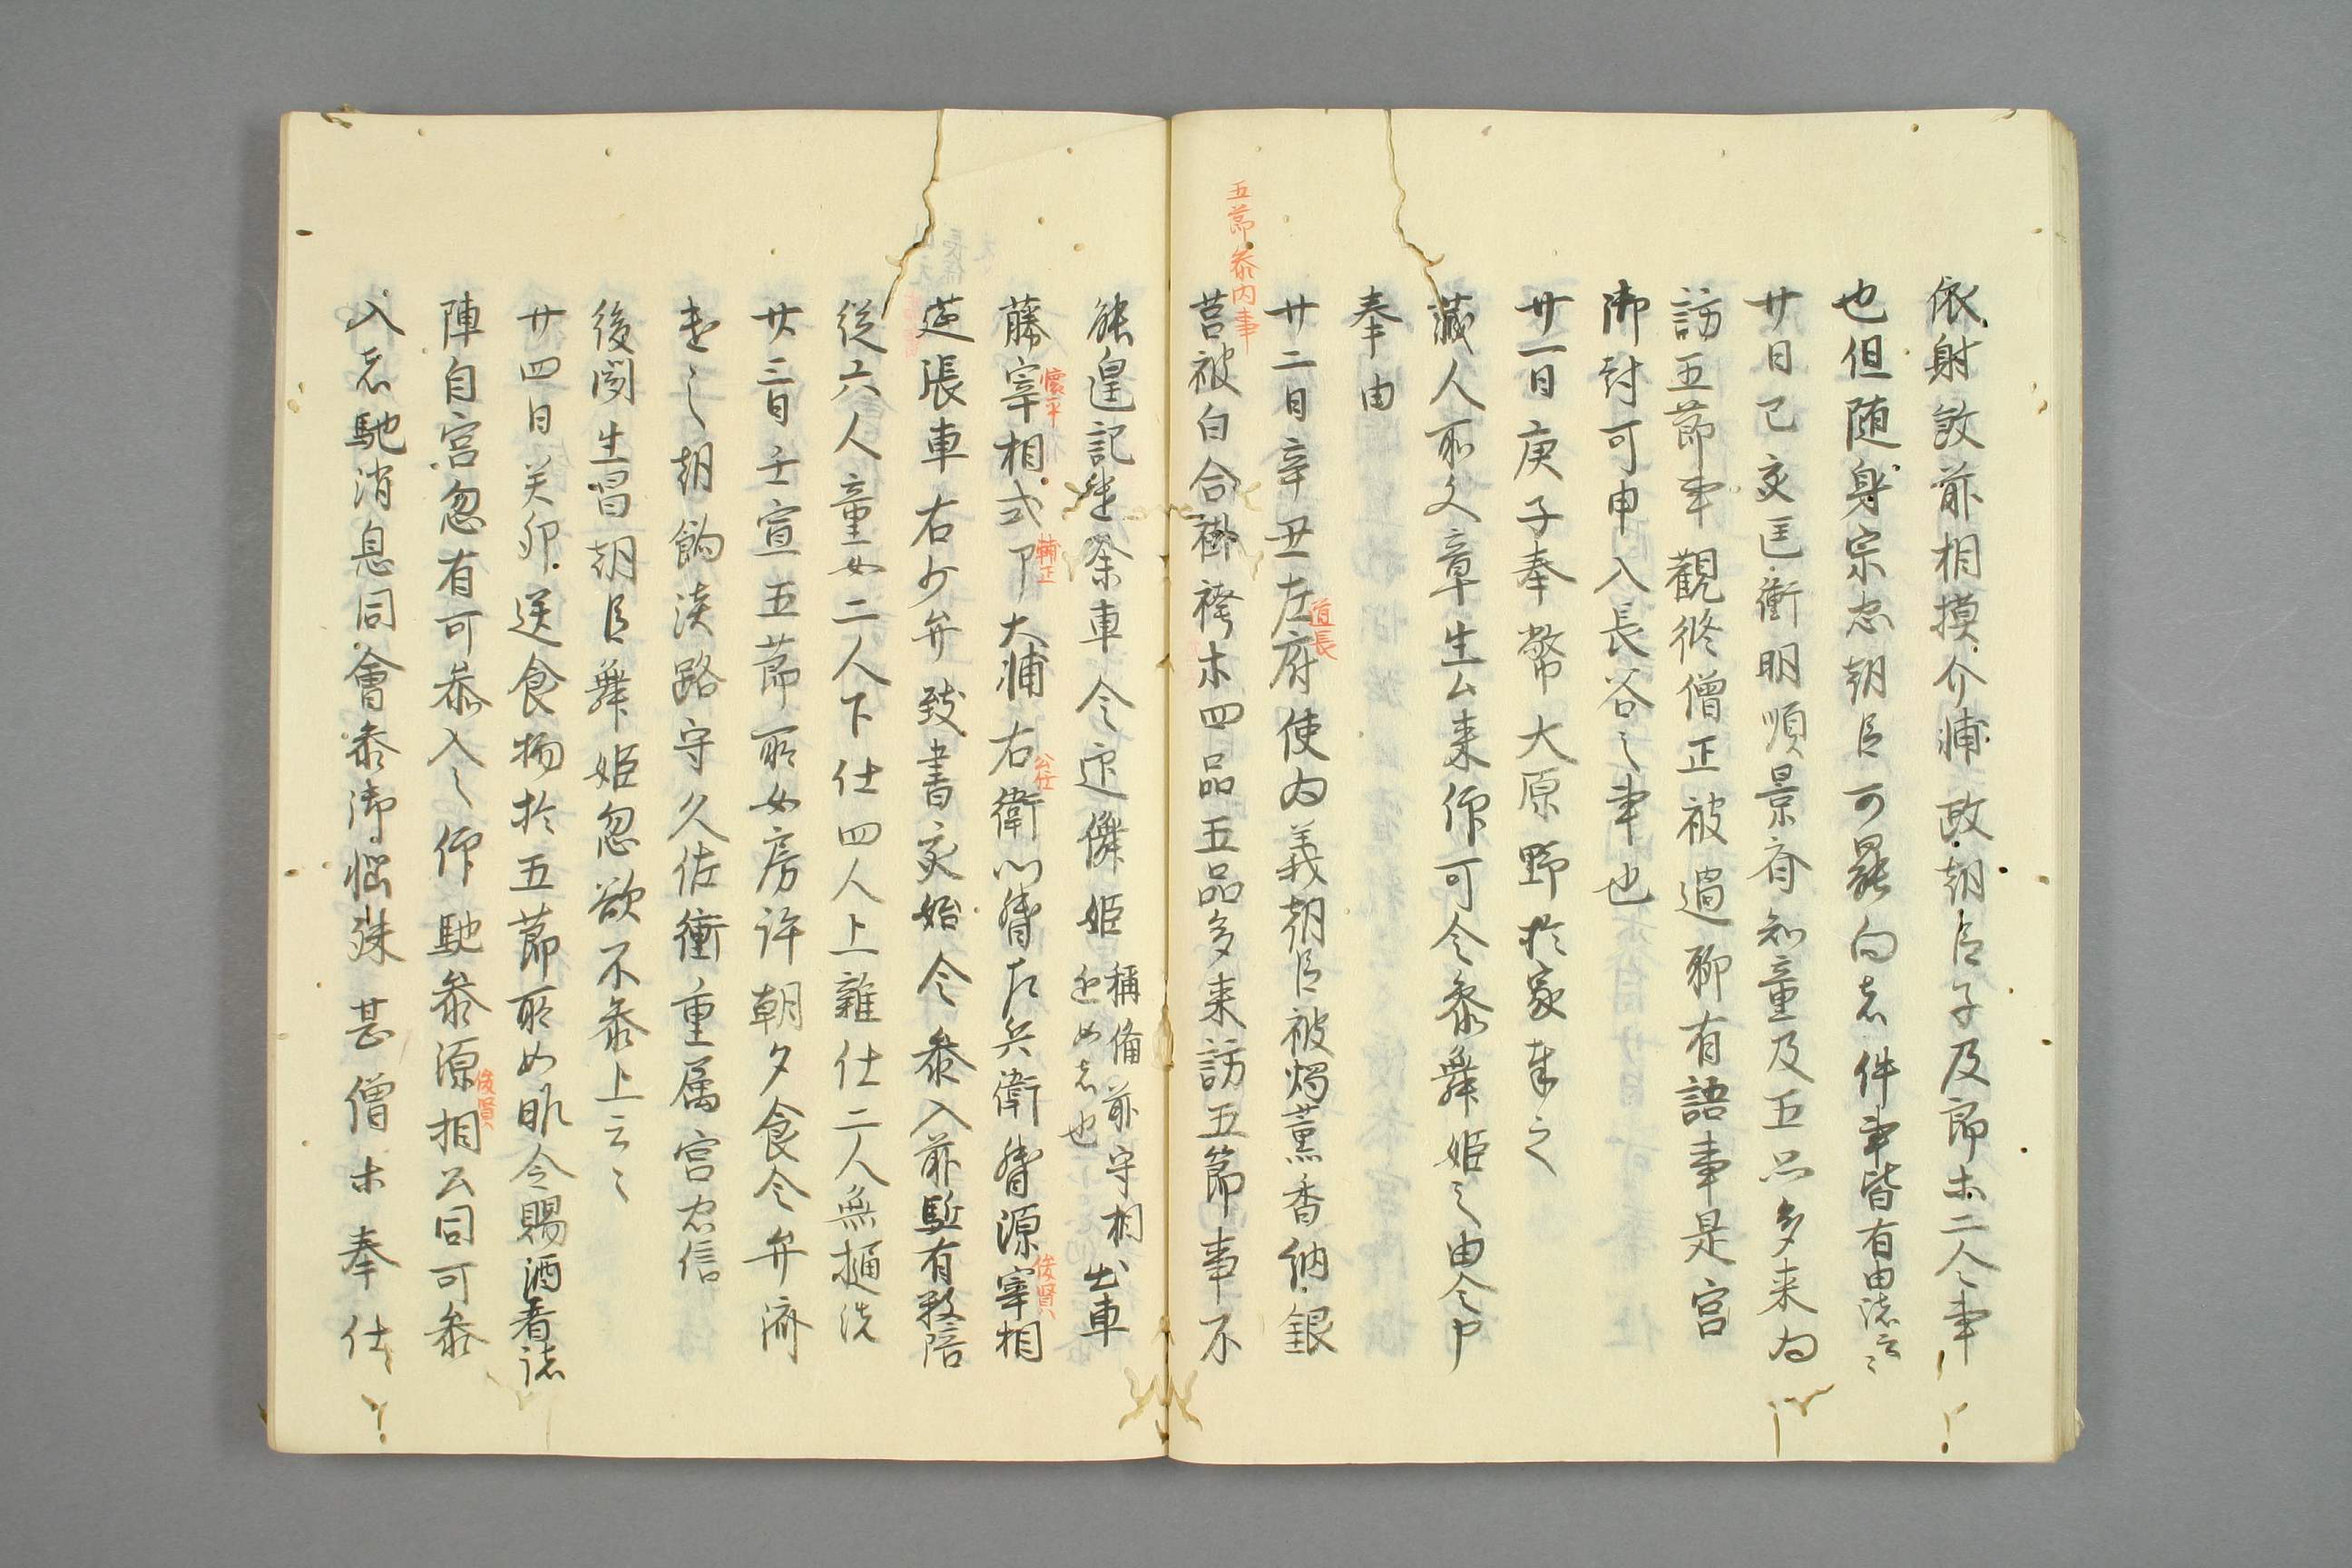 依射殺前相撲介浦政朝臣子及郎木二人事
也但随身宗忠朝臣可罷向者件事皆有由緒云々
廿日己亥匡衡明順景斉知童及五品多来為
訪五節事観修僧正被過聊有語事是宮
御封可申入長谷之事也
廿一日庚子奉幣大原野於家奉之
蔵人所文章生公来仰可令参舞姫之由令申
奉由
五節参内事
廿二日辛丑左府使為義朝臣被燭薫香納銀
道長
莒被白合褂袴木四品五品多来訪五節事不
能遑記秉条車令迎儛姫
稱備前守相
近女者也
出車
藤宰相式卩大浦右衛門督左兵衛督源宰相
懐平
輔正
公任
俊賢
莚張車右少弁致書亥始令参入前駈有数陪
従六人童女二人下仕四人上雑仕二人無樋洗
廿三日壬寅五節所女房許朝夕食令弁済
之朝餉淡路守久佐衝重属宮忠信
後聞生昌朝臣舞姫忽欲不参上云々
廿四日癸卯送食物於五節所如昨令賜酒肴諸
陣自宮忽有可参入之仰馳参源相公同可参
俊賢
入者馳消息同會参御悩殊甚僧木奉仕